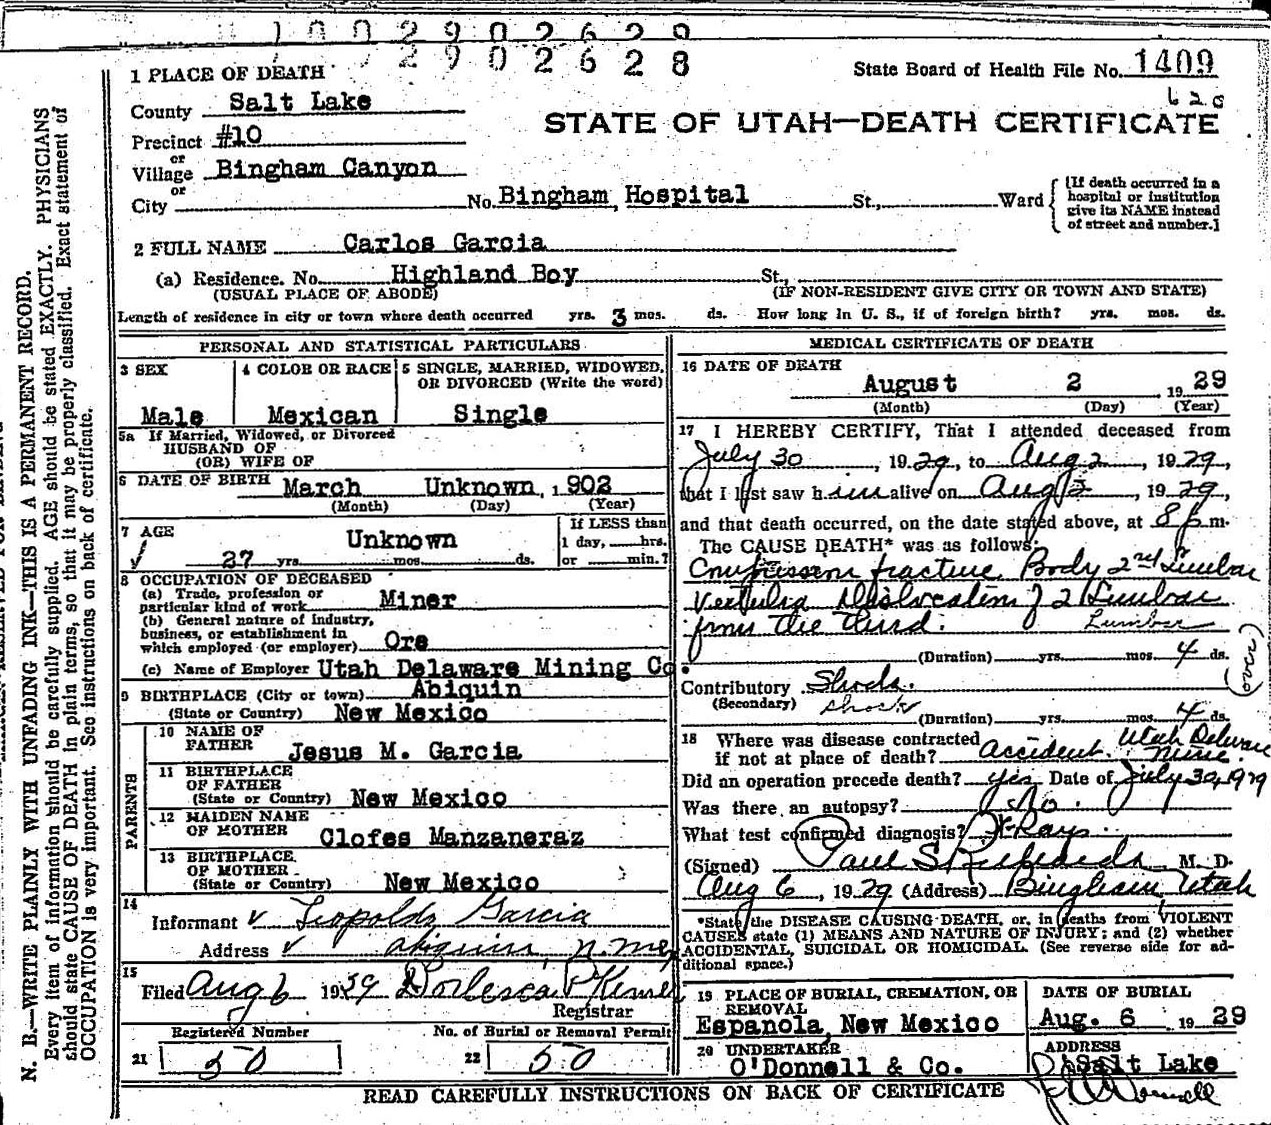 1 0 0 2 9 0 2 6 2 9
2 9 0 2 6 2 8
1 PLACE OF DEATH
State Board of Health File No. 1409
620
County Salt Lake
STATE OF UTAH—DEATH CERTIFICATE
Precinct #10
or
Village Bingham Canyon
or
City No. Bingham Hospital St., Ward
[If death occurred in a
hospital or institution
give its NAME instead
of street and number.]
2 FULL NAME Carlos Garcia
(a) Residence. No. Highland Boy St.,
(USUAL PLACE OF ABODE) (IF NON-RESIDENT GIVE CITY OR TOWN AND STATE)
Length of residence in city or town where death occurred yrs. 3 mos. ds. How long in U. S., if of foreign birth? yrs. mos. ds.
PERSONAL AND STATISTICAL PARTICULARS
3 SEX
Male
4 COLOR OR RACE
Mexican
5 SINGLE, MARRIED, WIDOWED,
OR DIVORCED (Write the word)
Single
5a If Married, Widowed, or Divorced
HUSBAND OF
(OR) WIFE OF
6 DATE OF BIRTH March Unknown, 1902
(Month) (Day) (Year)
7 AGE
Unknown
27 yrs. mos. ds.
If LESS than
1 day, hrs.
or min.?
8 OCCUPATION OF DECEASED
(a) Trade, profession or
particular kind of work Miner
(b) General nature of industry,
business, or establishment in
which employed (or employer) Ore
(c) Name of Employer Utah Delaware Mining Co.
9 BIRTHPLACE (City or town) Abiquin
(State or Country) New Mexico
PARENTS
10 NAME OF
FATHER Jesus M. Garcia
11 BIRTHPLACE
OF FATHER
(State or Country) New Mexico
12 MAIDEN NAME
OF MOTHER Clofes Manzaneraz
13 BIRTHPLACE
OF MOTHER
(State or Country) New Mexico
14
Informant Leopoldo Garcia
Address abiquiu, n. mex
15
Filed Aug 6 1929
Registrar
Registered Number
21 50
No. of Burial or Removal Permit
22 50
MEDICAL CERTIFICATE OF DEATH
16 DATE OF DEATH
August 2 1929
(Month) (Day) (Year)
17 I HEREBY CERTIFY, That I attended deceased from
July 30, 1929, to Aug 2, 1929,
that I last saw him alive on Aug 2, 1929,
and that death occurred, on the date stated above, at 8 pm.
The CAUSE DEATH* was as follows:
Compression fracture Body 2nd Lumbar
Vertebra Dislocation of 2 Lumbar
from the third. Lumbar
(Duration) yrs. mos. 4 ds.
(over)
Contributory Shock.
(Secondary) Shock
(Duration) yrs. mos. 4 ds.
18 Where was disease contracted
if not at place of death? accident. Utah Delware Mine.
Did an operation precede death? yes Date of July 30, 1929
Was there an autopsy? No.
What test confirmed diagnosis? X-Rays.
(Signed) Paul S M. D.
Aug 6, 1929 (Address) Bingham, Utah
*State the DISEASE CAUSING DEATH, or, in deaths from VIOLENT
CAUSES state (1) MEANS AND NATURE OF INJURY; and (2) whether
ACCIDENTAL, SUICIDAL OR HOMICIDAL. (See reverse side for ad-
ditional space.)
19 PLACE OF BURIAL, CREMATION, OR
REMOVAL
Espanola, New Mexico
DATE OF BURIAL
Aug. 6 1929
20 UNDERTAKER
O'Donnell & Co.
ADDRESS
Salt Lake
O'Donnell
READ CAREFULLY INSTRUCTIONS ON BACK OF CERTIFICATE
N. B.—WRITE PLAINLY WITH UNFADING INK—THIS IS A PERMANENT RECORD.
Every item of information should be carefully supplied. AGE should be stated EXACTLY. PHYSICIANS
should state CAUSE OF DEATH in plain terms, so that it may be properly classified. Exact statement of
OCCUPATION is very important. See instructions on back of certificate.